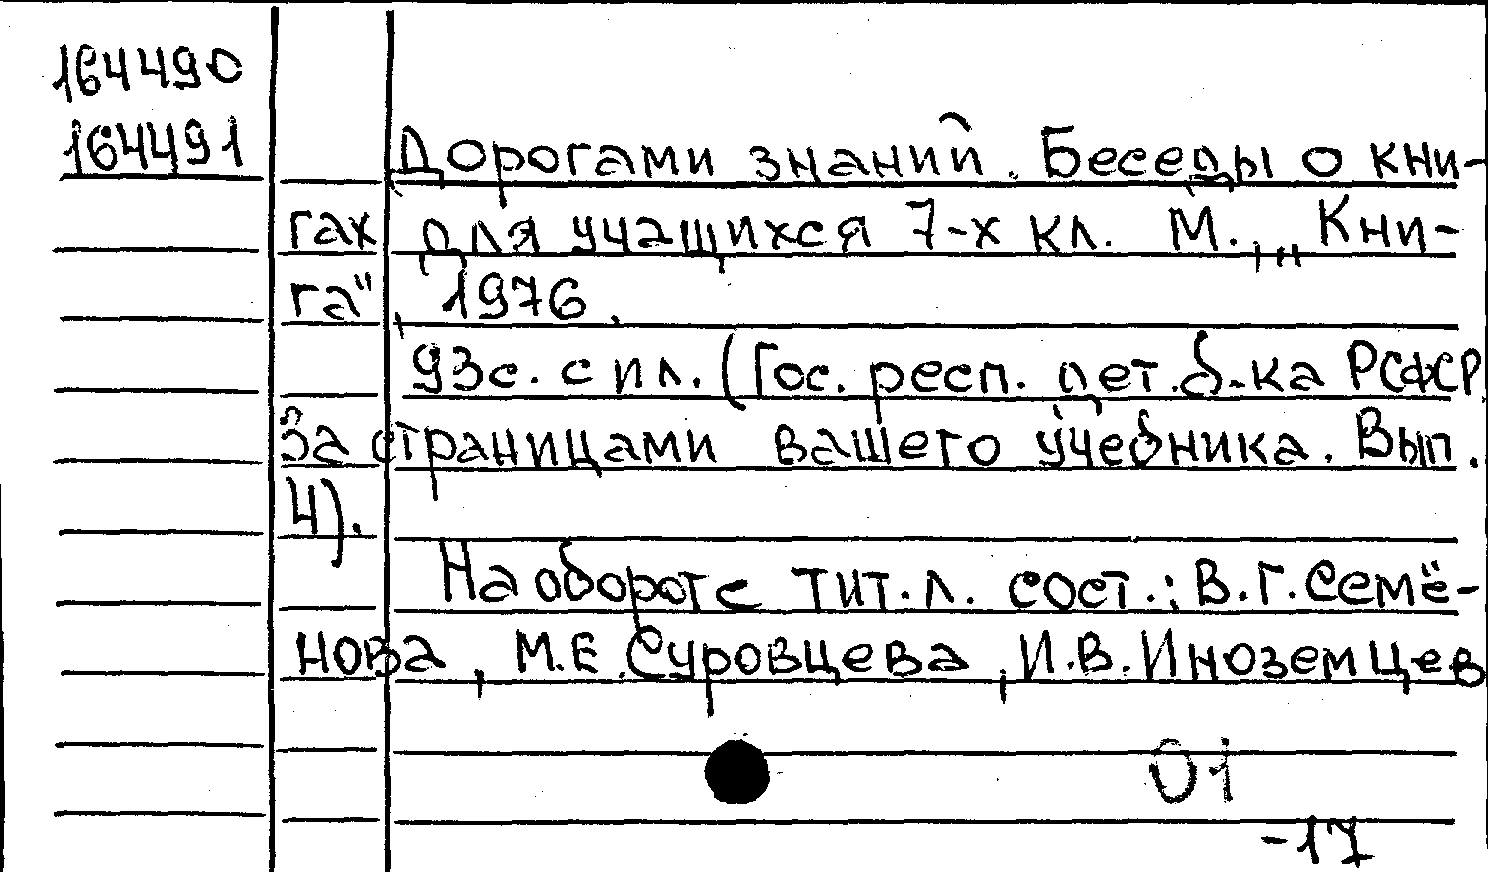 164490
164491
Дорогами знаний. Беседы о кни-
гах для учащихся 7-х кл. М., „Кни-
га", 1976.
93с. с ил. (Гос. респ. дет. б-ка РСФСР
За страницами вашего учебника. Вып.
4).
На обороте тит. л. сост.: В.Г. Семё-
нова, М.Е. Суровцева, И.В. Иноземцев
01
-17